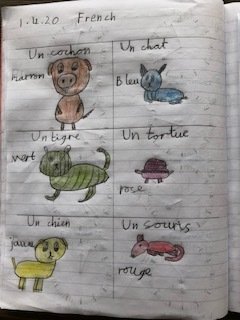 1.4.20 French
Un cochon
marron
Un chat
Bleu
Un tigre
vert
Un tortue
rose
Un chien
jaune
Un souris
rouge